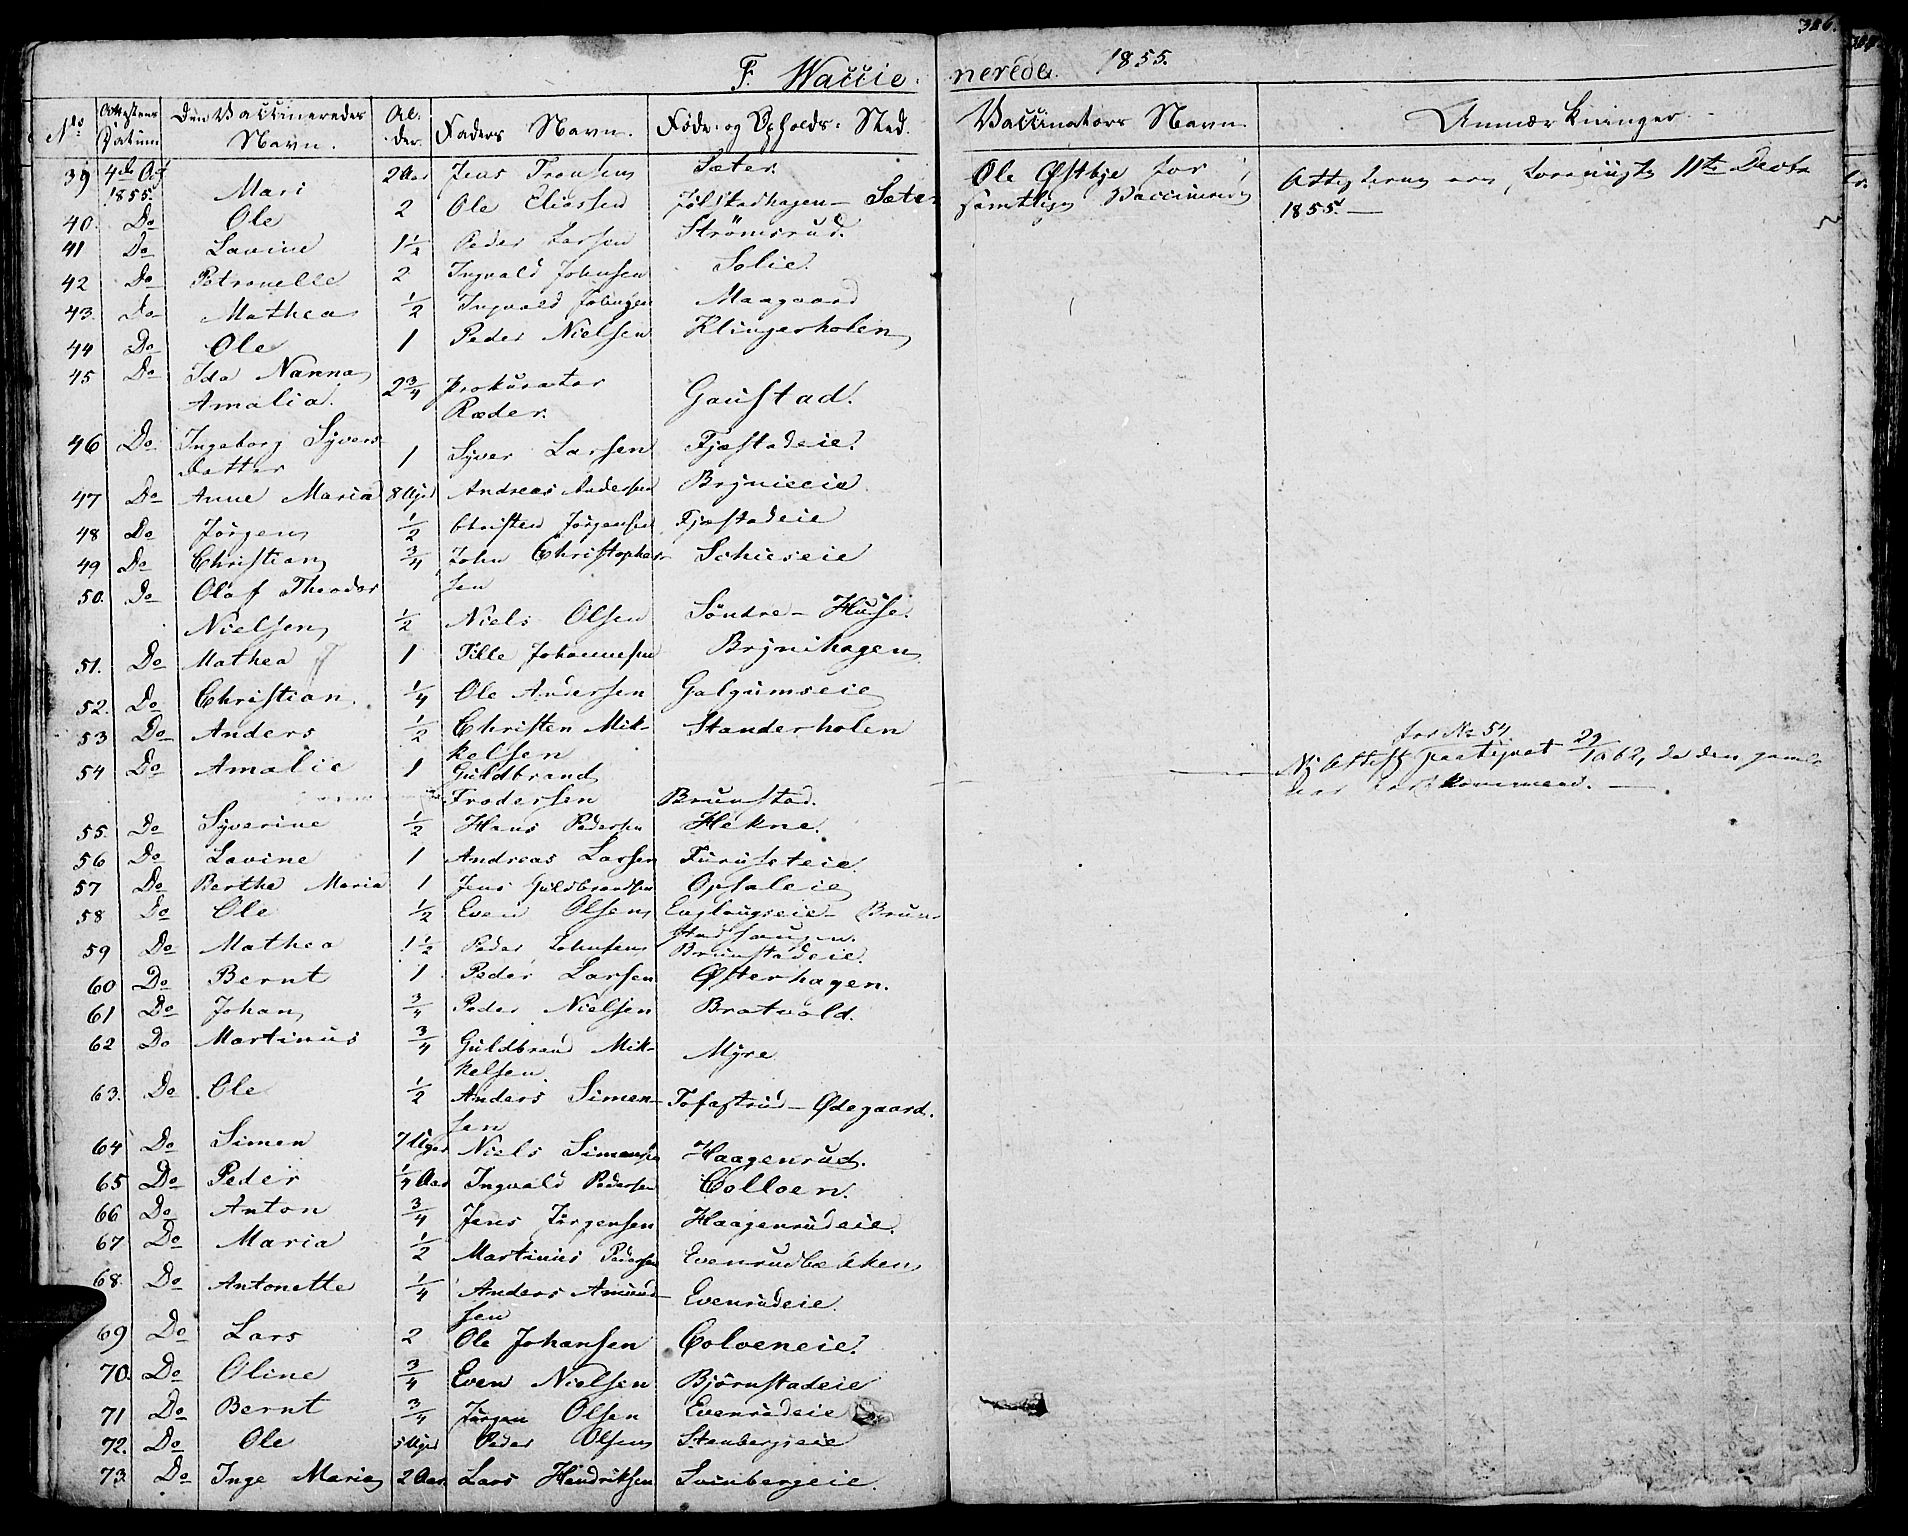 326.
F. Waccinerede. 1855.
No. Attestens Datum Den Vaccineredes Navn. Alder. Faders Navn. Føde- og Opholds-Sted. Vaccinators Navn Anmærkninger.
39 4de 1855. Mari 2 Aar Jens Sæter. Ole Østbye for samtlige Vaccinerede 11te 1855.—
40. Do Ole 2 Ole Eliassen Jølstadhagen— Sæter
41 Do Lavine 1½ Peder Larsen Strömsrud.
42 Do Petronelle 2 Ingvald Johnsen Solie.
43. Do Mathea ½ Ingvald Maagaard
44 Do Ole 1 Peder Nielsen Klingerholen
45 Do Ida Nanna
Amalia. 2¾ Prokurator
Ræder. Gaustad.
46 Do Ingeborg Syvers-
datter 1 Syver Larsen Fjæstadeie.
47 Do Anne Maria 8 Uger Andreas Andersen Brynieeie
48 Do Jørgen ½ Christen Jørgensen Fjæstadeie
49 Do Christian ¾ John Christopher-
sen Schieseie
50. Do Olaf Theodor
Nielsen ½ Niels Olsen Söndre— Huse.
51. Do Mathea 1 Tille Johannesen Brynihagen
52. Do Christian ¼ Ole Andersen Galgumseie
53 Do Anders ½ Christen Mik-
kelsen Standerholen
54 Do Amalie 1 Guldbrand
Frodersen Brunstad. for No 54
Ny Attest 29/1 062, da den gamle
var bortkommend. —
55. Do Syverine ½ Hans Pedersen Hekne.
56 Do Lavine 1 Andreas Larsen Furuseteie.
57 Do Berthe Maria 1 Jens Guldbrandsen Opsaleie
58 Do Ole ½ Even Olsen Englaugseie— Brun-
stadhaugen.
59 Do Mathea 1½ Peder Johnsen Brunstadeie.
60 Do Bernt 1 Peder Larsen Østerhagen.
61 Do Johan ¾ Peder Nielsen Bratvold.
62 Do Martinus ¾ Guldbrand Mik-
kelsen. Myre
63. Do Ole ½ Anders Simen-
sen Tofastrud— Ødegaard.
64 Do Simen 7 Uger Niels Simensen Haagenrud.
65 Do Peder ¼ Aar Ingvald Pedersen Colloen.
66 Do Anton ¾ Jens Jörgensen Haagenrudeie.
67 Do Maria ½ Martinus Pedersen Evenrudbækken
68. Do Antonette ¼ Anders Amund-
sen Evenrudeie.
69 Do Lars 2 Ole Johansen Coloeneie.
70. Do Oline ¾ Even Nielsen Bjørnstadeie
71 Do Bernt ¾ Jörgen Olsen Evenrudeie
72. Do Ole 5 Uger Peder Olsen Stenbergseie
73. Do Inge Maria 2 Aar Lars Hendriksen Svinbergeie.